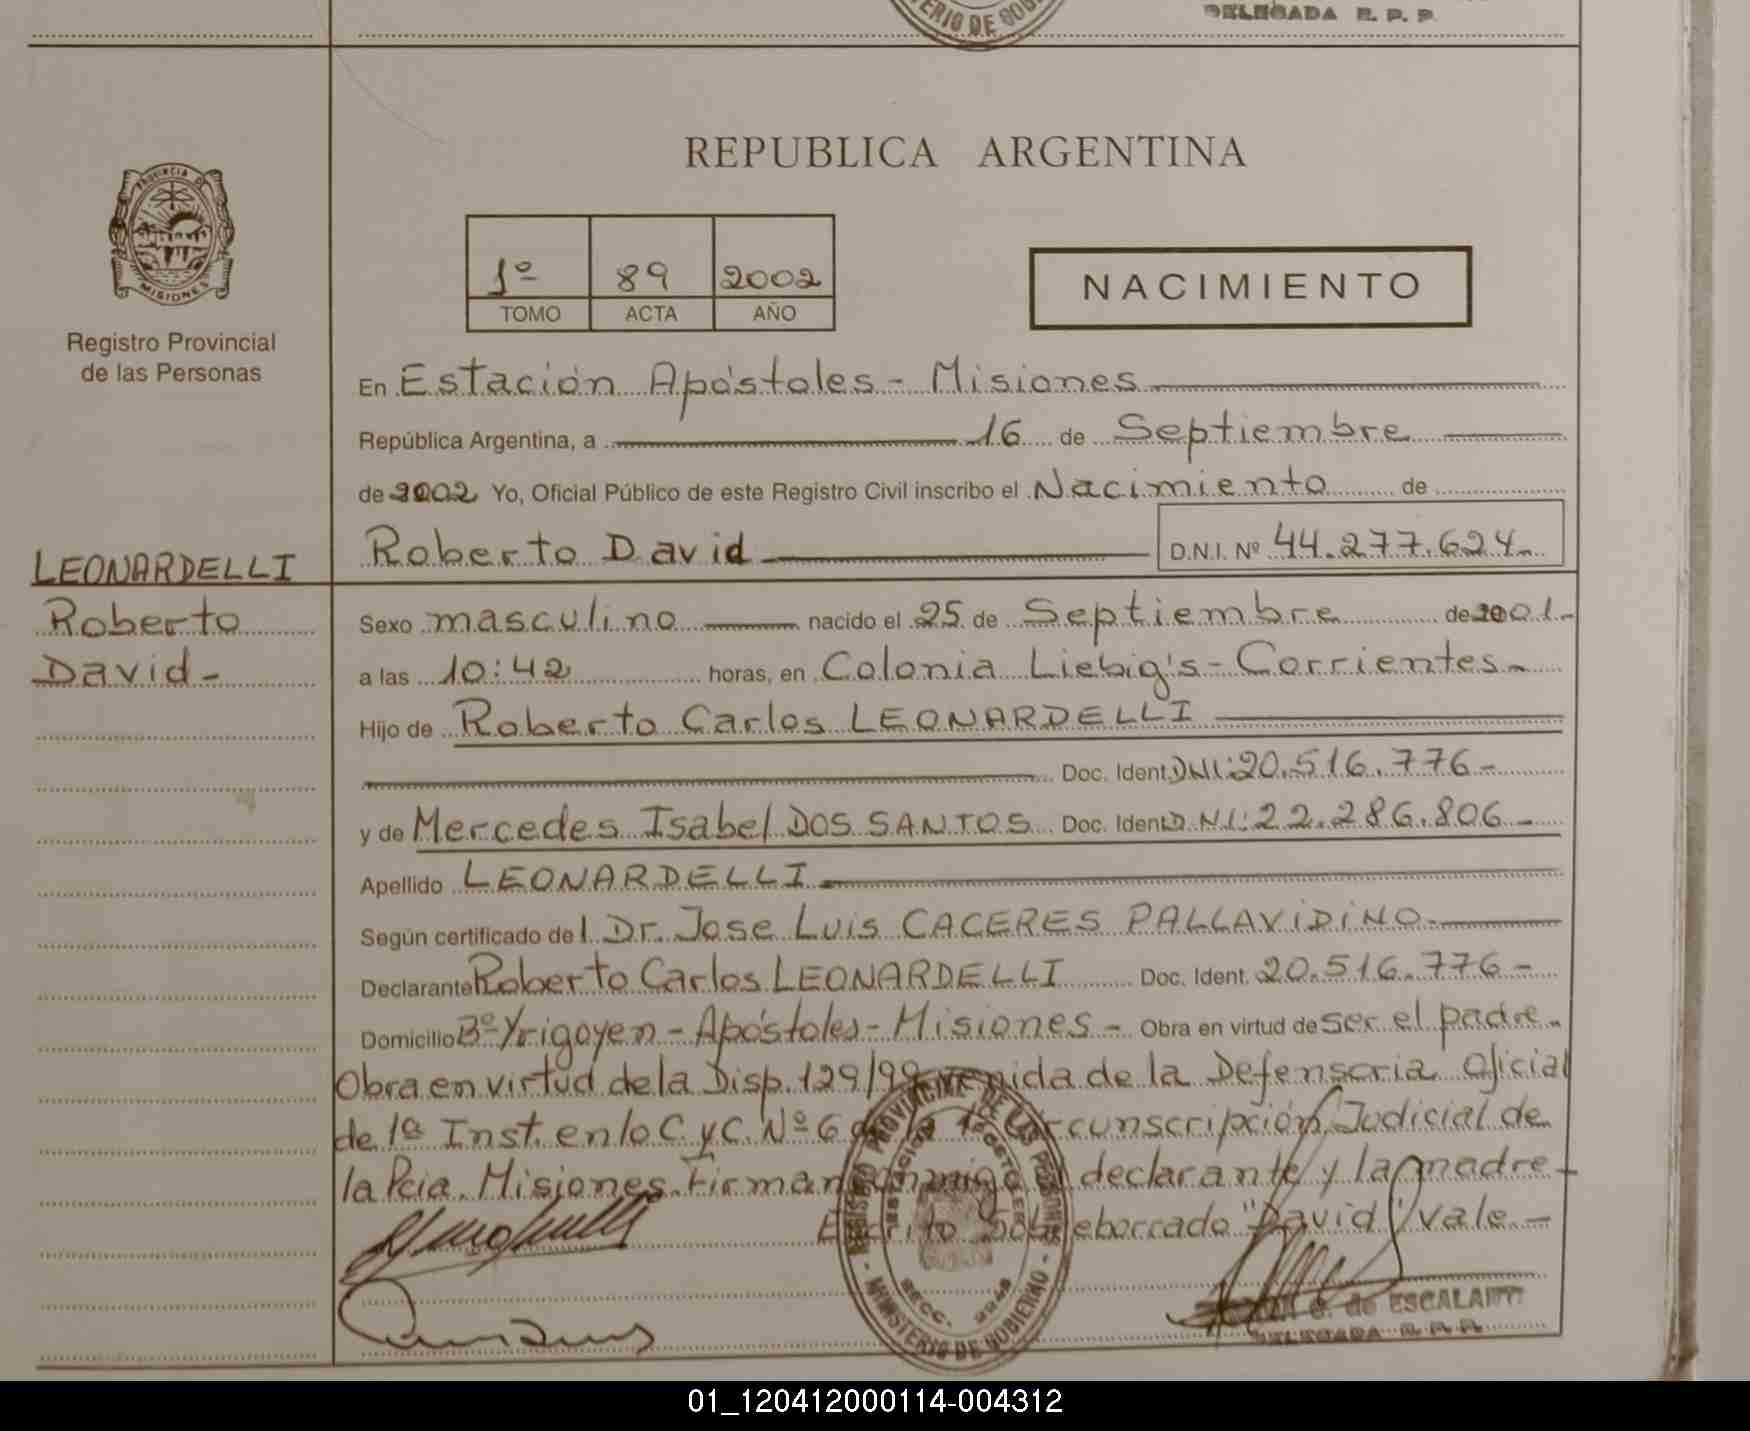 DELEGADA R. P. P.
REPUBLICA ARGENTINA
PROVINCIA DE
MISIONES
Registro Provincial
de las Personas
1º 89 2002
TOMO ACTA AÑO
NACIMIENTO
En Estación Apóstoles - Misiones
República Argentina, a 16 de Septiembre
de 2002 Yo, Oficial Público de este Registro Civil inscribo el Nacimiento de
Roberto David D.N.I. Nº 44.277.624.-
LEONARDELLI
Roberto
David-
Sexo masculino nacido el 25 de Septiembre de 2001.-
a las 10:42 horas, en Colonia Liebig's - Corrientes-
Hijo de Roberto Carlos LEONARDELLI
Doc. Ident. DNI: 20.516.776-
y de Mercedes Isabel DOS SANTOS Doc. Ident. D.N.I.: 22.286.806-
Apellido LEONARDELLI
Según certificado del Dr. Jose Luis CACERES PALLAVIDINO-
Declarante Roberto Carlos LEONARDELLI Doc. Ident. 20.516.776-
Domicilio Bº Yrigoyen - Apóstoles - Misiones - Obra en virtud de ser el padre.
Obra en virtud de la Disp. 129/99 venida de la Defensoria Oficial
de 1ª Inst. en lo C. y C. Nº 6 de la 1ª Circunscripción Judicial de
la Pcia. Misiones. Firman conmigo el declarante y la madre-
Escrito sobreborrado "David" vale.-
REGISTRO PROVINCIAL DE LAS PERSONAS
- MINISTERIO DE GOBIERNO -
de ESCALANTE
DELEGADA R. P. P.
01_120412000114-004312